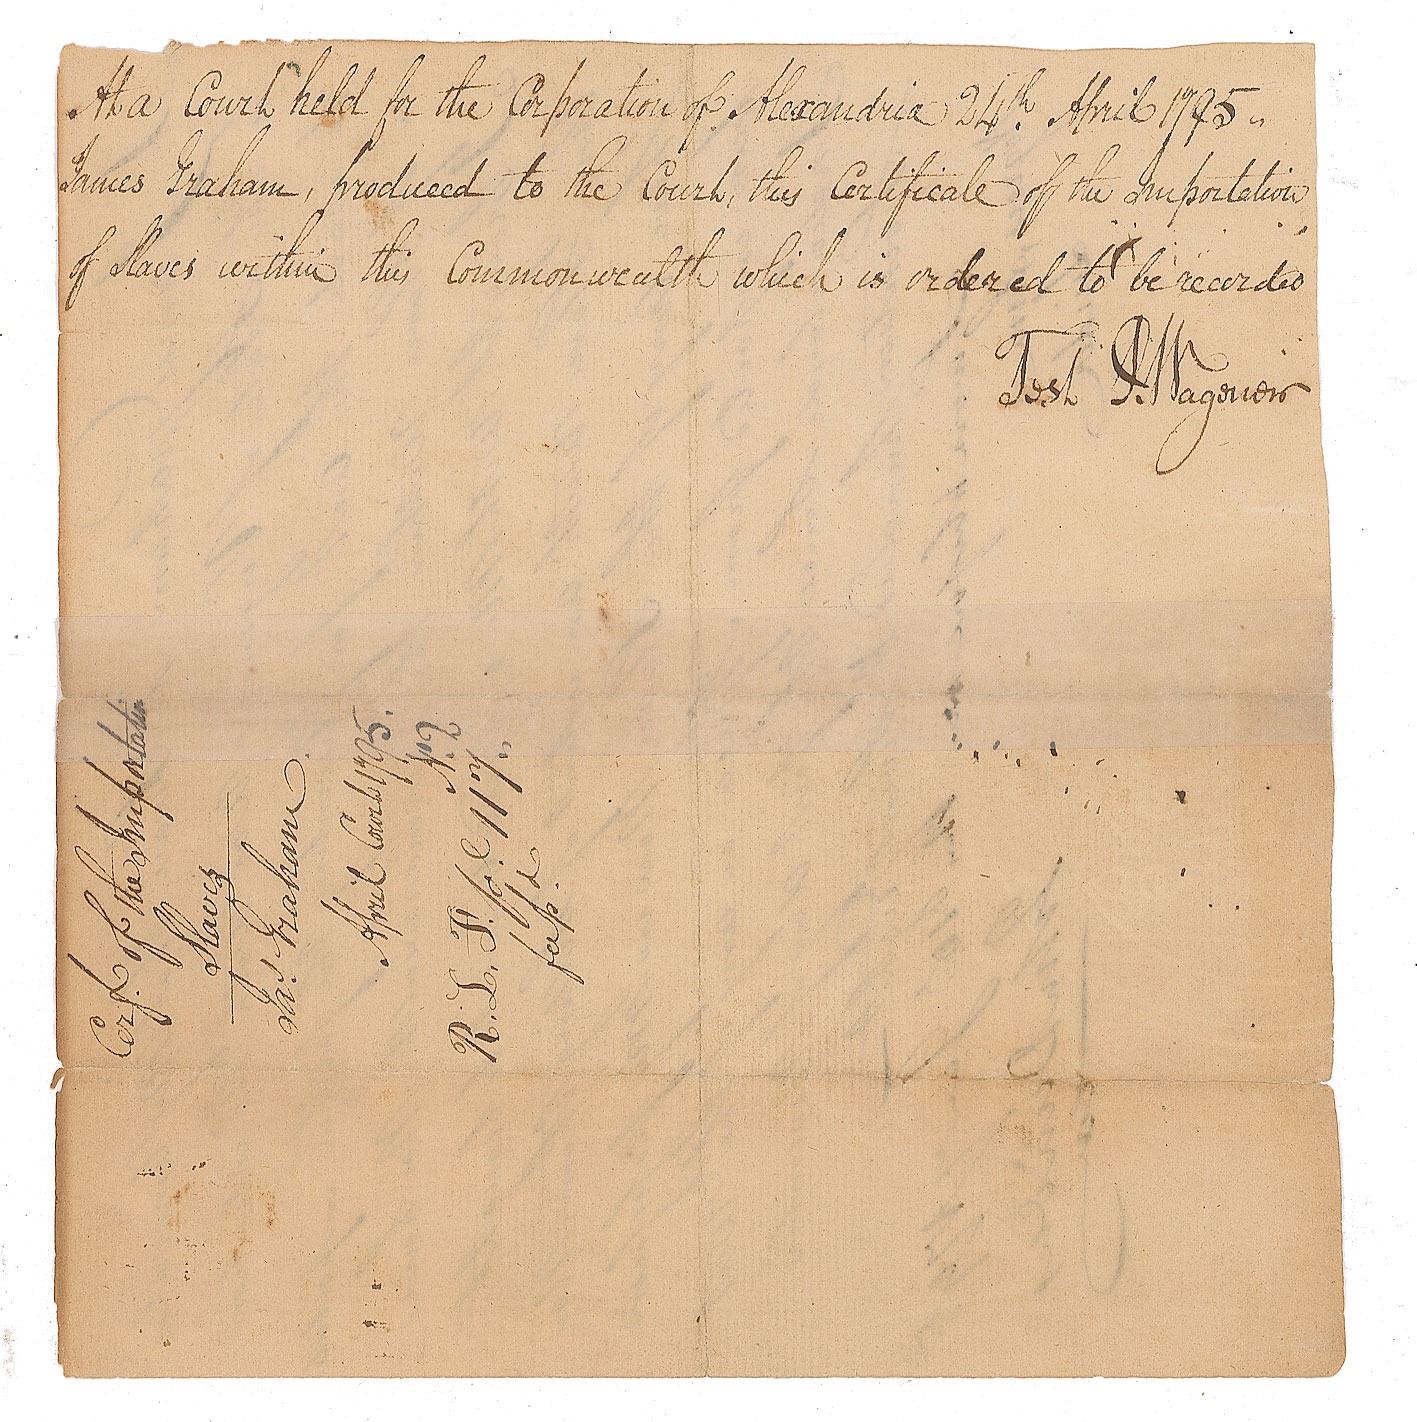 At a Court held for the Corporation of Alexandria 24th April 1795
James Graham, produced to the Court, this Certificate of the Importation
of Slaves within this Commonwealth which is ordered to be recorded
Test P. Wagener
Cerf. of the Importation
Slaves
Jas Graham
April Court 1795.
No. 2
R. L. F. 117